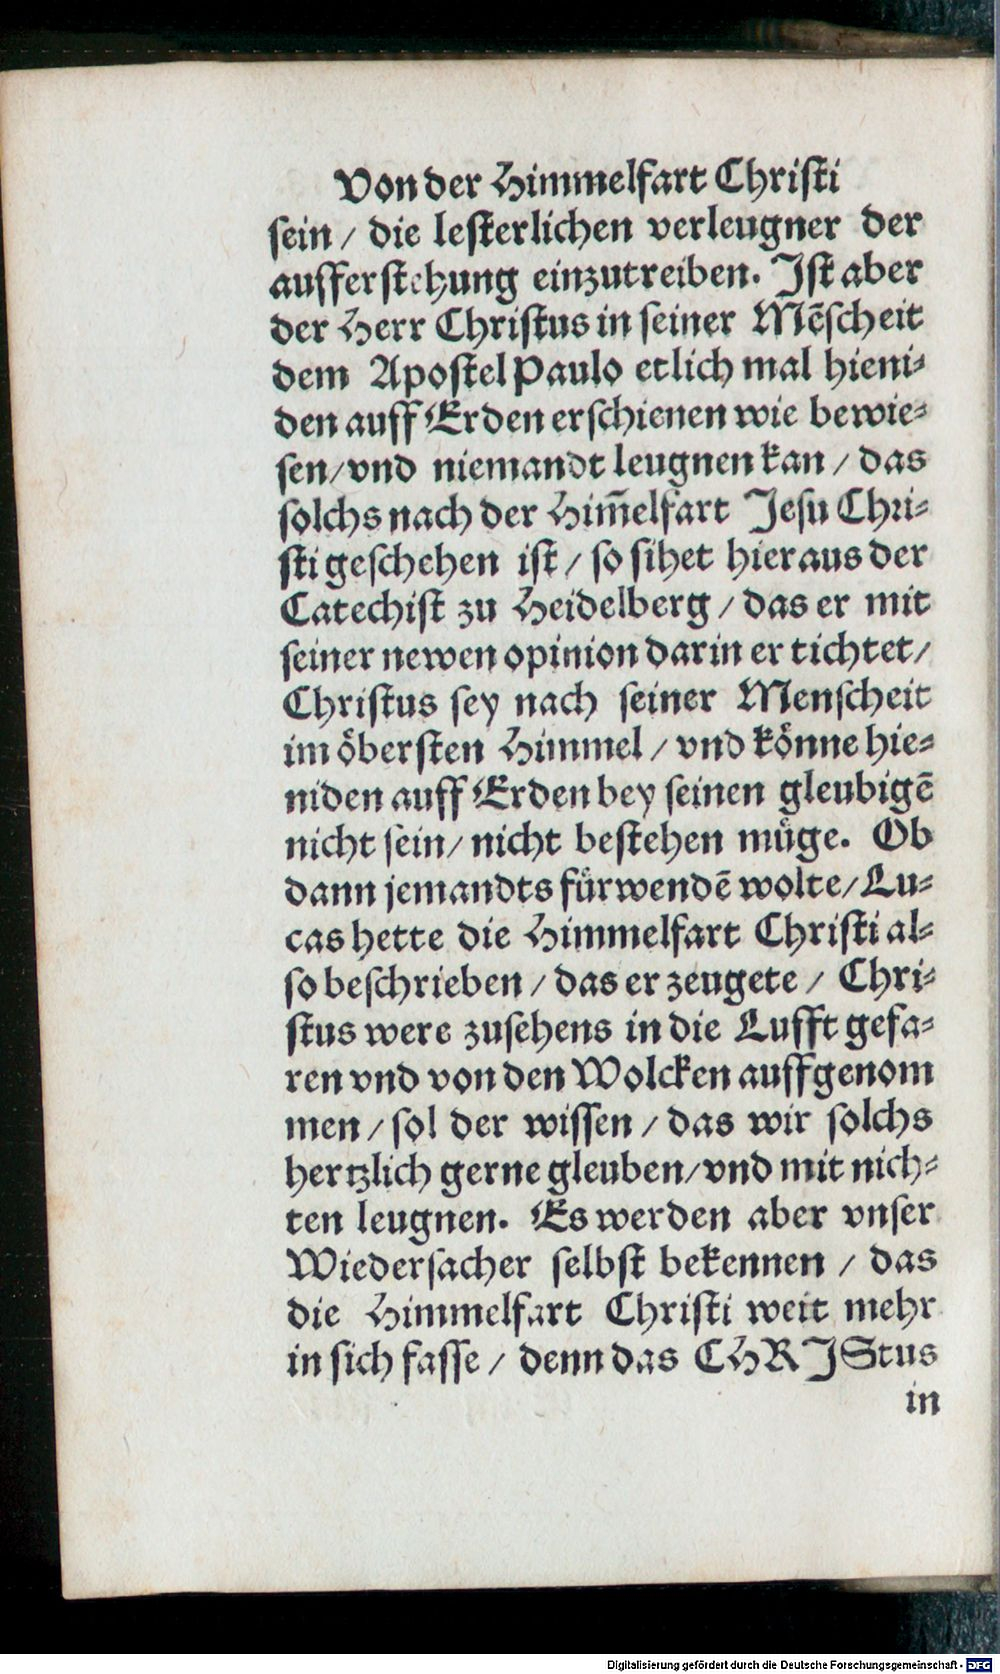 Von der Himmelfart Christi
sein / die lesterlichen verleugner der
aufferstehung einzutreiben. Ist aber
der Herr Christus in seiner Mẽscheit
dem Apostel Paulo etlich mal hieni⸗
den auff Erden erschienen wie bewie⸗
sen/vnd niemandt leugnen kan / das
solchs nach der Him̃elfart Jesu Chri⸗
sti geschehen ist / so sihet hieraus der
Catechist zu Heidelberg / das er mit
seiner newen opinion darin er tichtet/
Christus sey nach seiner Menscheit
im öbersten Himmel / vnd könne hie⸗
niden auff Erden bey seinen gleubigẽ
nicht sein/ nicht bestehen müge. Ob
dann jemandts fürwendẽ wolte/Lu⸗
cas hette die Himmelfart Christi al⸗
so beschrieben / das er zeugete / Chri⸗
stus were zusehens in die Lufft gefa⸗
ren vnd von den Wolcken auffgenom
men / sol der wissen / das wir solchs
hertzlich gerne gleuben/vnd mit nich⸗
ten leugnen. Es werden aber vnser
Wiedersacher selbst bekennen / das
die Himmelfart Christi weit mehr
in sich fasse / denn das CHRJStus
in
Digitalisierung gefördert durch die Deutsche Forschungsgemeinschaft - DFG